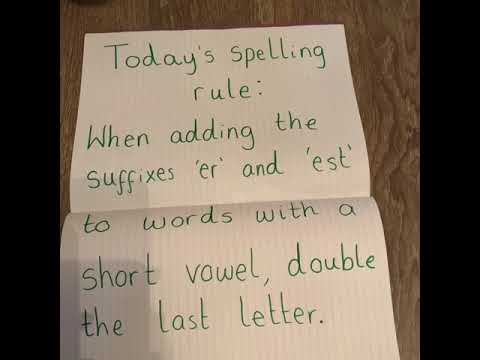 Today's spelling
rule:
When adding the
suffixes 'er' and 'est'
to words with a
short vowel, double
the last letter.